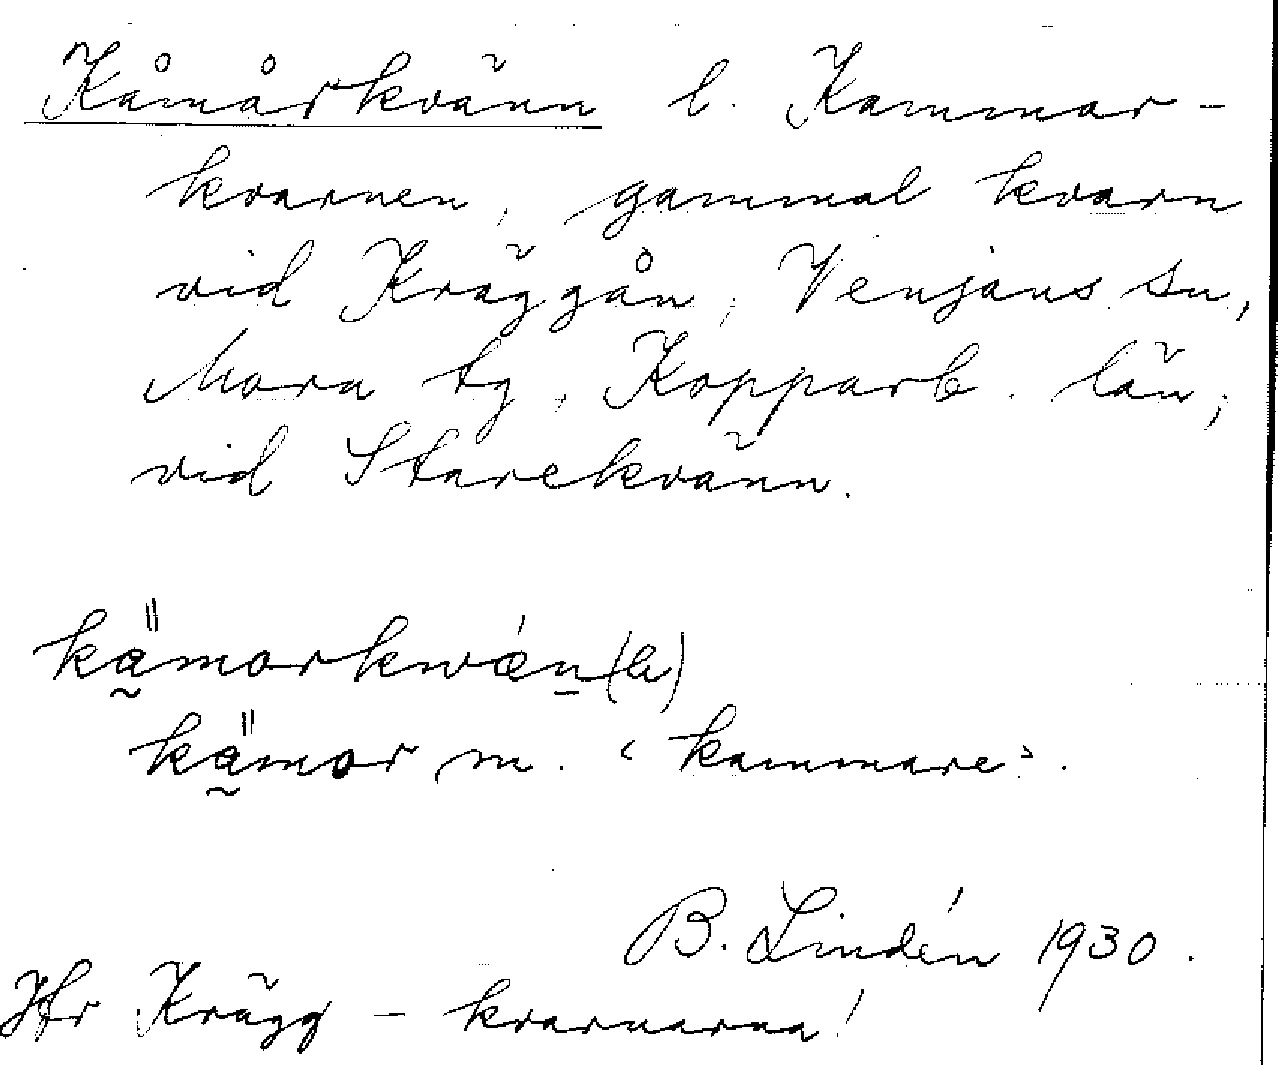 Kåmårkvänn l. Kammar-
kvarnen, gammal kvarn
vid Kräggån, Venjans sn,
Mora tg, Kopparb. län;
vid Starekvänn.
kämorkwǽn(a)
kämor m. ‘kammare’.
B. Lindén 1930.
Jfr Krägg - kvarnarna!